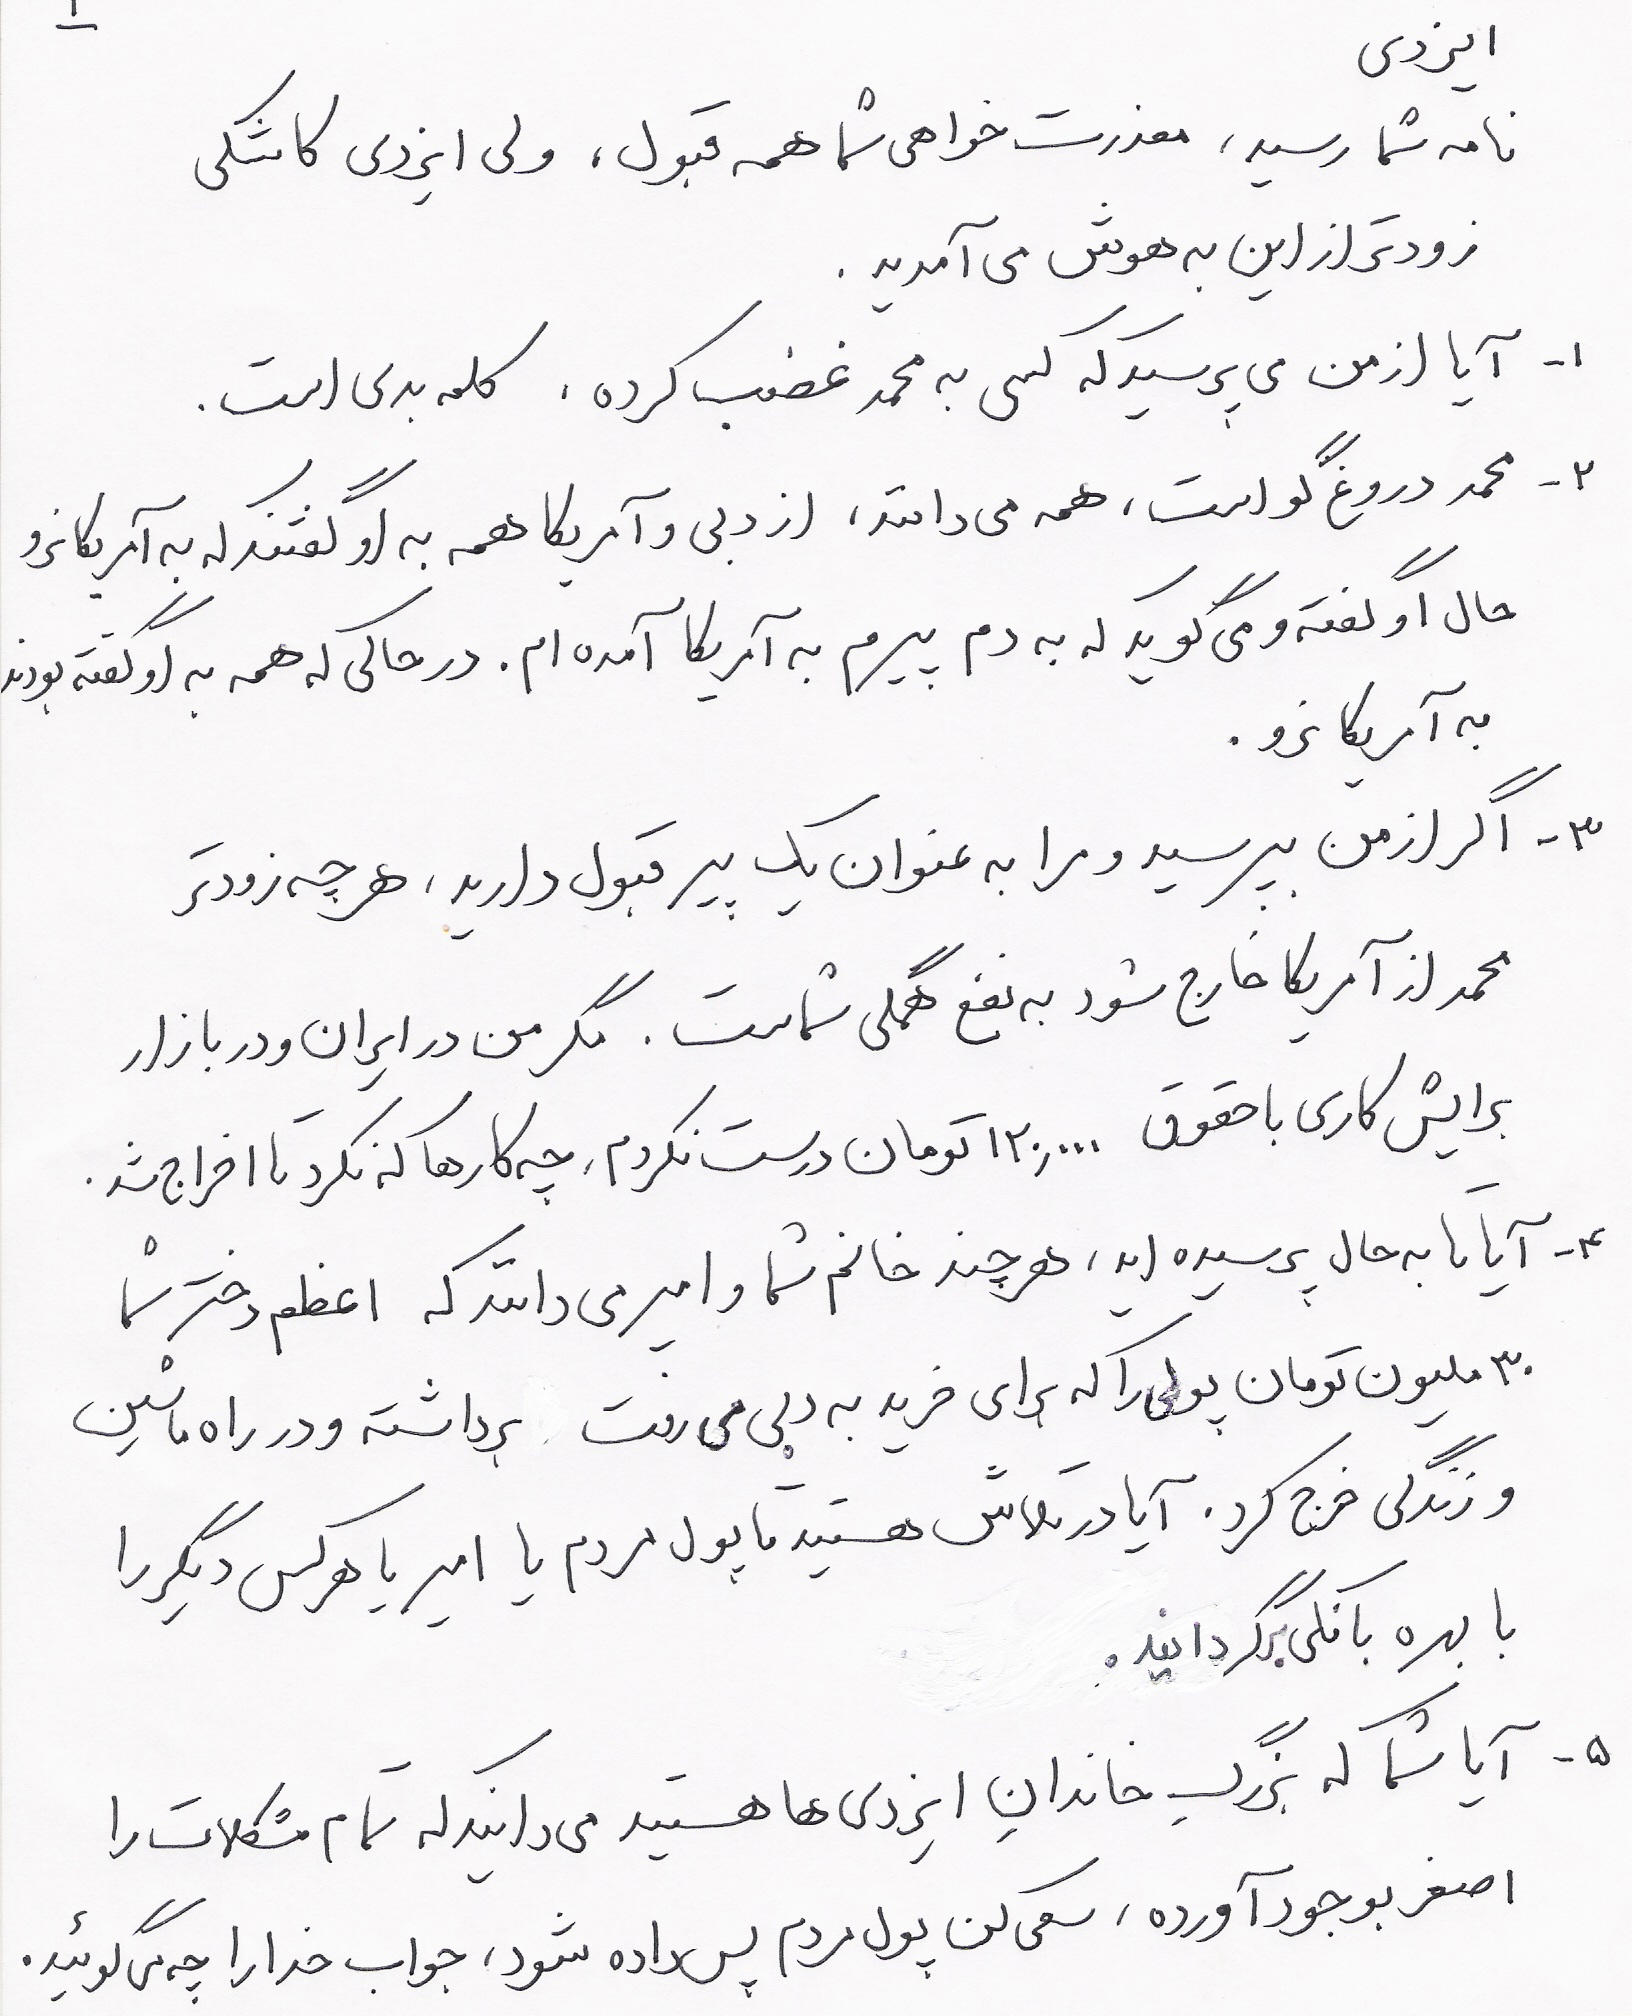 ۱
ایزدی
نامه شما رسید، معذرت خواهی شما همه قبول، ولی ایزدی کاشکی
زودتر از این به هوش می آمدید.
۱- آیا از من می پرسید که کسی به محمد غضب کرده، کلمه بدی است.
۲- محمد دروغ گو است، همه می دانند، از دبی و آمریکا همه به او گفتند که به آمریکا نرو
حال او گفته و می گوید که به دم پیرم به آمریکا آمده ام. در حالی که همه به او گفته بودند
به آمریکا نرو.
۳- اگر از من بپرسید و مرا به عنوان یک پیر قبول دارید، هر چه زودتر
محمد از آمریکا خارج شود به نفع همگی شماست. مگر من در ایران و در بازار
برایش کاری با حقوق ۱۲۰,۰۰۰ تومان درست نکردم, چه کارها که نکرد تا اخراج شد.
۴- آیا تا به حال پرسیده اید، هر چند خانم شما و امیر می دانند که اعظم دختر شما
۳۰ ملیون تومان پولی را که برای خرید به دبی می رفت برداشته و در راه ماشین
و زندگی خرج کرد. آیا در تلاش هستید تا پول مردم یا امیر یا هر کس دیگر را
با بهره بانکی برگردانید.
۵- آیا شما که بزرگ خاندان ایزدی ها هستید می دانید که تمام مشکلات را
اصغر بوجود آورده، سعی کن پول مردم پس داده شود، جواب خدا را چه می گوئید.